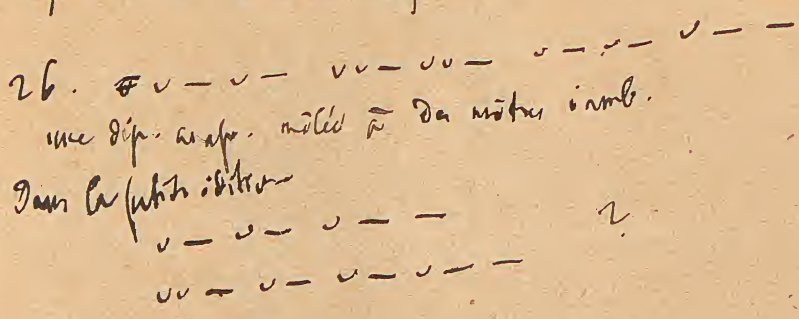 26. ᴗ – ᴗ – ᴗᴗ – ᴗᴗ – ᴗ – ᴗ – ᴗ – –
une dip. anap. mêlée à des mètres iamb.
Dans la petite édition
ᴗ – ᴗ – ᴗ – – ?
ᴗᴗ – ᴗ – ᴗ – ᴗ – –